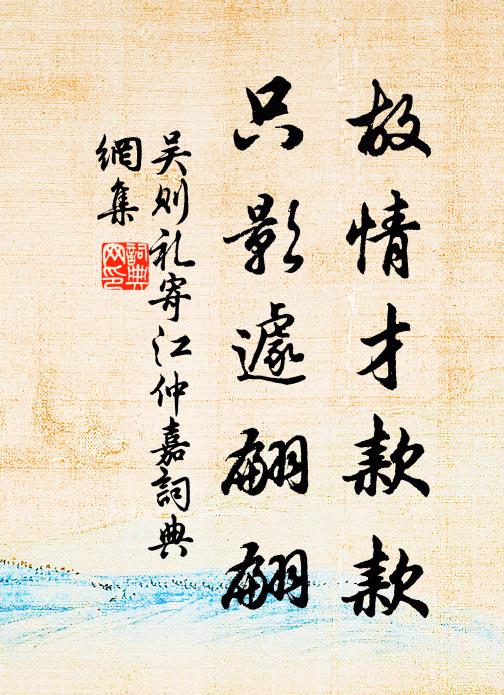 故情才款款
只影遽翩翩
吴则礼寄江仲嘉詞典
網集
詞典
网印